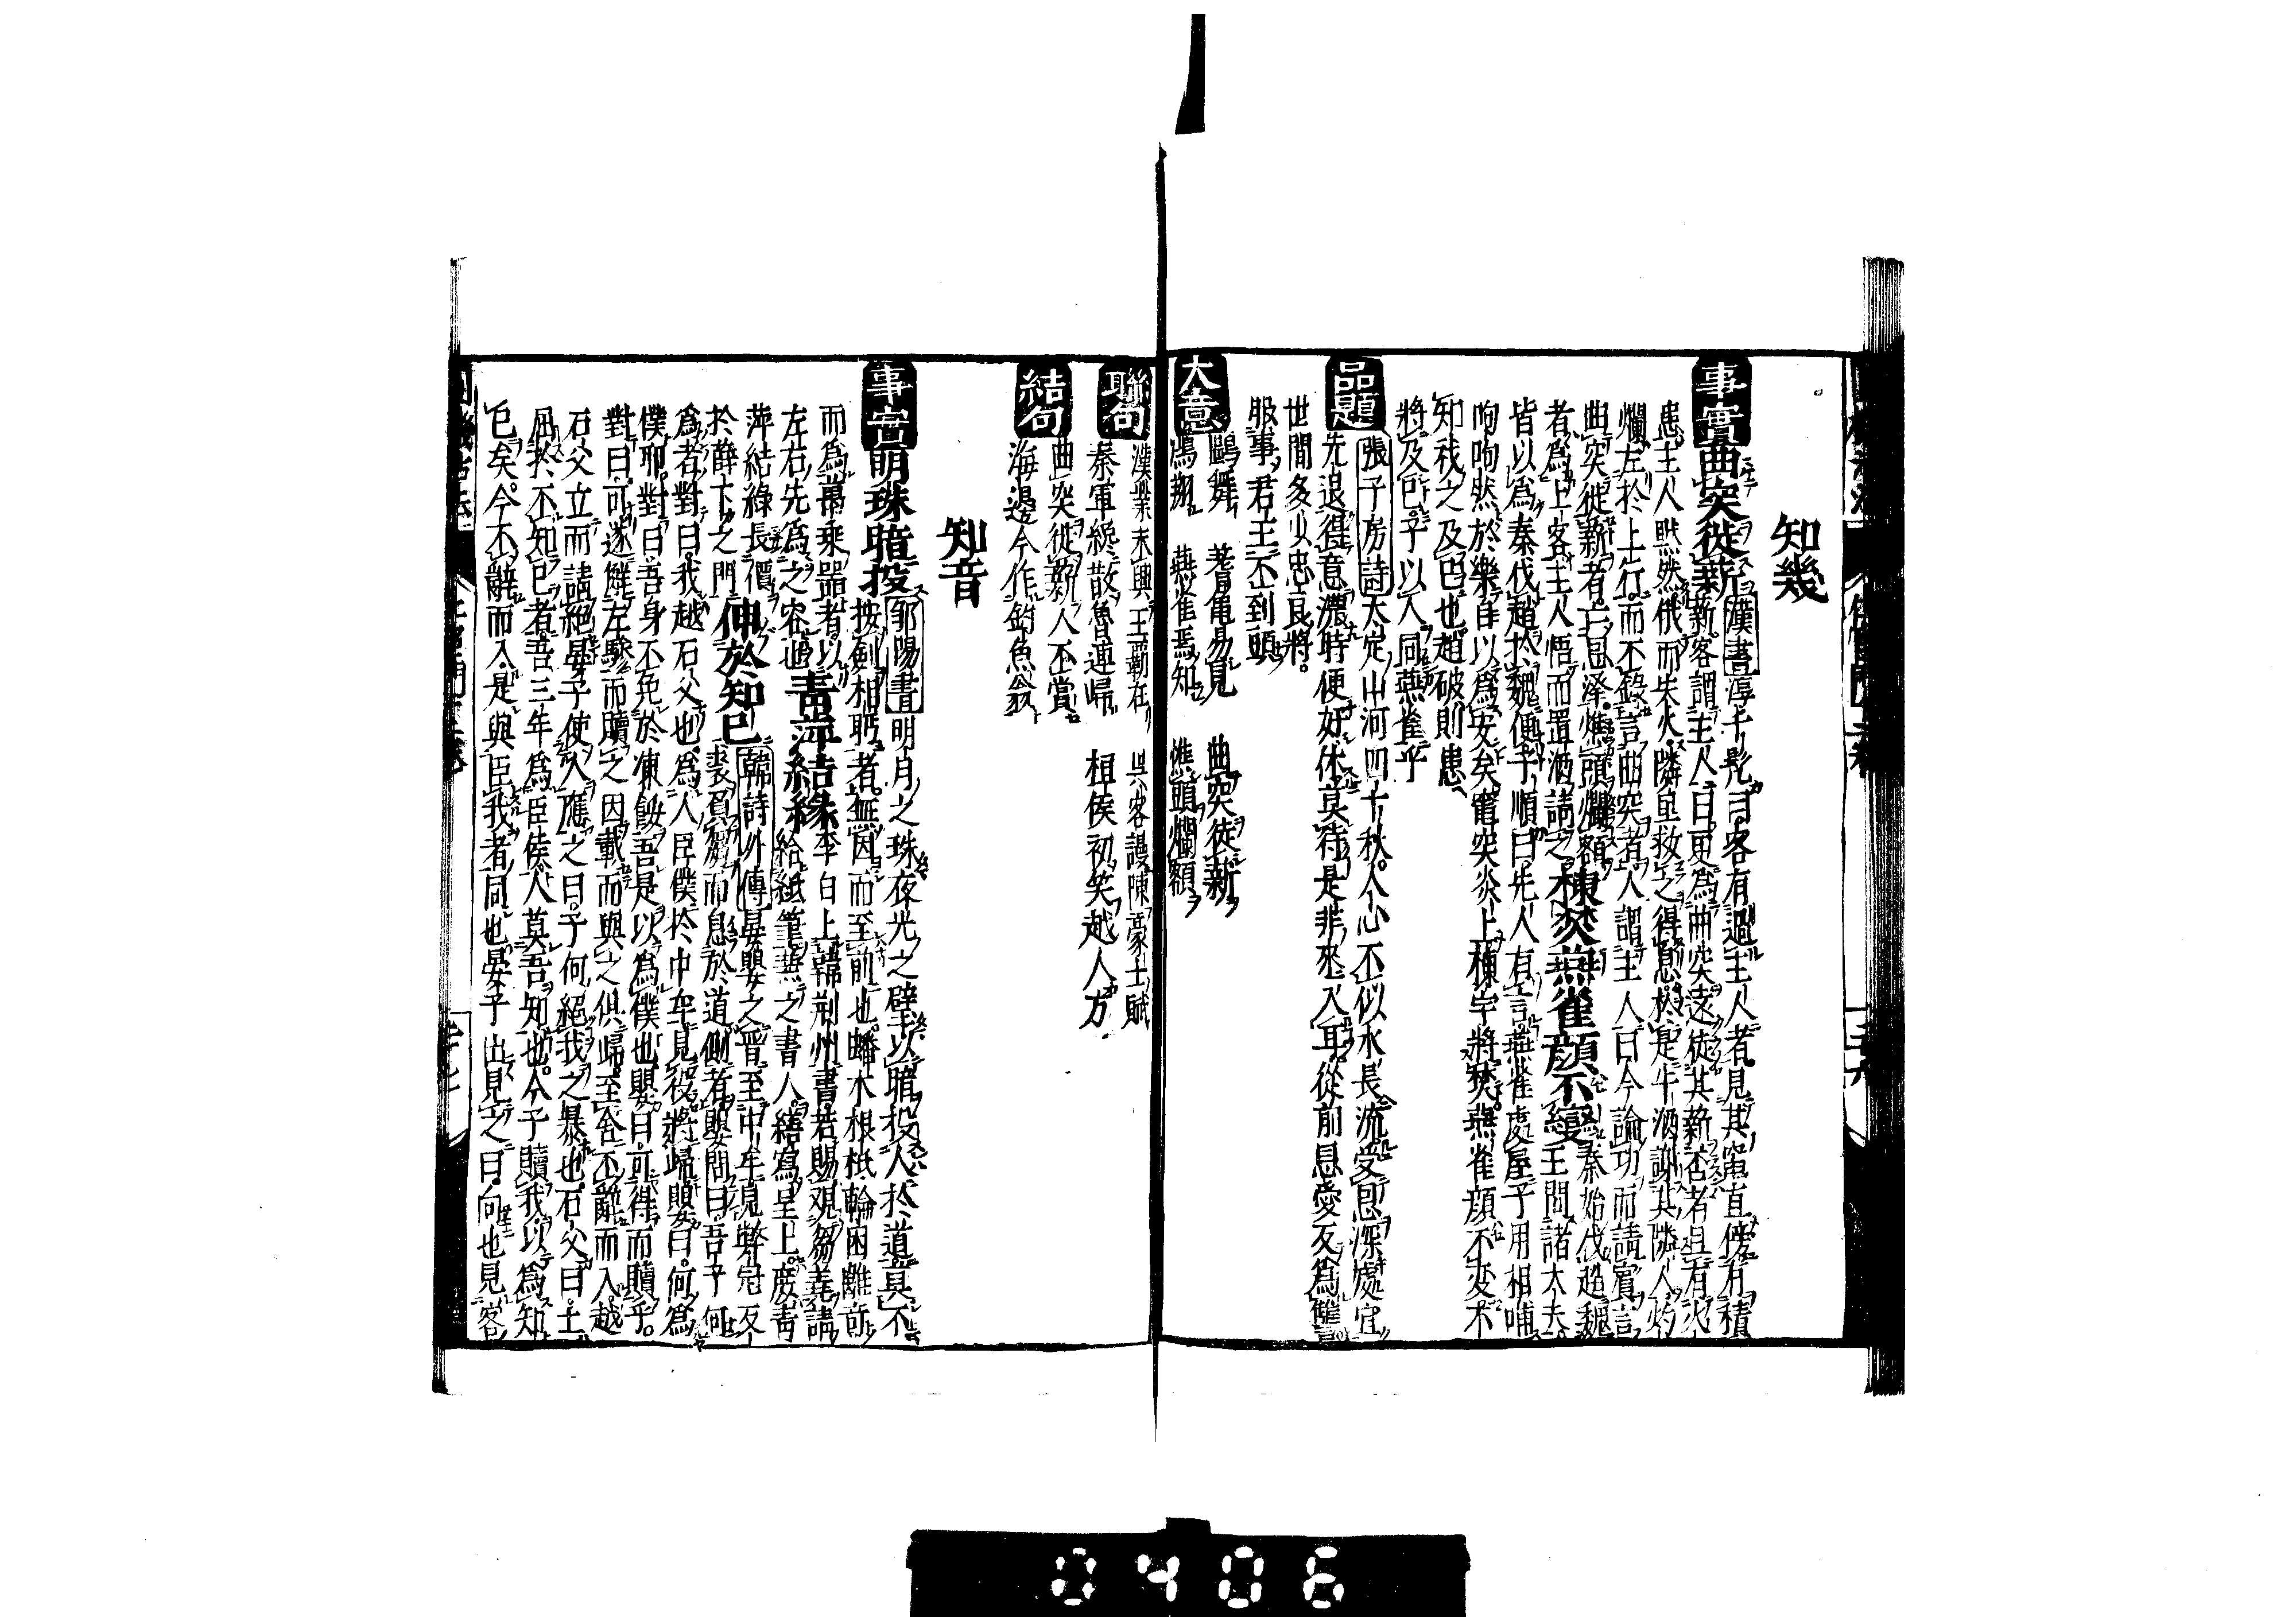 知幾
事實 曲突徙薪 漢書淳于髠曰客有過主人者見其竈直傍有積
薪客謂主人曰更為曲突遠徙其薪否者且有火
患主人黙然俄而失火隣里救之得息於是牛酒謝其隣人灼
爛左於上行而不錄言曲突者人謂主人曰今論功而請賓言
曲突徙薪者亡恩澤燋頭爛額
者為上客主人悟而置酒請之 棟焚燕雀顔不變 秦始伐趙魏
王問諸大夫
皆以為秦伐趙於魏便子順曰先人有言燕雀處屋子用相哺
呴呴然於樂自以為安矣竈突炎上棟宇將焚燕雀顔不变不
知禍之及己也趙破則患
將及己子以人同燕雀乎
品題 張子房詩 太定山河四十秋人心不似水長流受恩深處宜
先退得意濃時便好休莫待是非來入耳從前恩愛反為讐
世間多少忠良將
服事君王不到頭
大意 鷗舞 蓍亀易見 曲突徙薪
鴻翔 燕雀焉知 燋頭爛額
聯句 漢業末興王霸在 楚客謾陳豪士賦
秦軍纔散魯連歸 桓侯初笑越人方
結句 曲突徙薪人不賞
海邊今作釣魚翁
知音
事實 明珠暗投 鄒陽書 明月之珠夜光之璧以暗投人於道莫不
按劍相眄者無因而至前也蟠木根柢輪囷離奇
而為萬乘器者以
左右先為之容也 青萍結緑 李白上韓荊州書若賜观芻蕘請
給紙筆兼之書人繕寫呈上庶青
萍結綠長價
於薛卞之門 伸於知己 韓詩外傳 晏嬰之晋至中牟見弊冠反
裘負芻而息於道側者嬰問曰吾子何
為者對曰我越石父也為人臣僕於中牟見役將歸嬰曰何為
僕耶對曰吾身不免於凍餒吾是以為僕也嬰曰可得而贖乎
對曰可遂解左驂而贖之因載而與之俱歸至舍不辭而入越
石父立而請絕晏子使人應之曰子何絕我之暴也石父曰士
屈於不知己者吾三年為臣僕人莫吾知也今子贖我以為知
己矣今不辭而入是與臣我者同也晏子出見之曰向也見客
0406